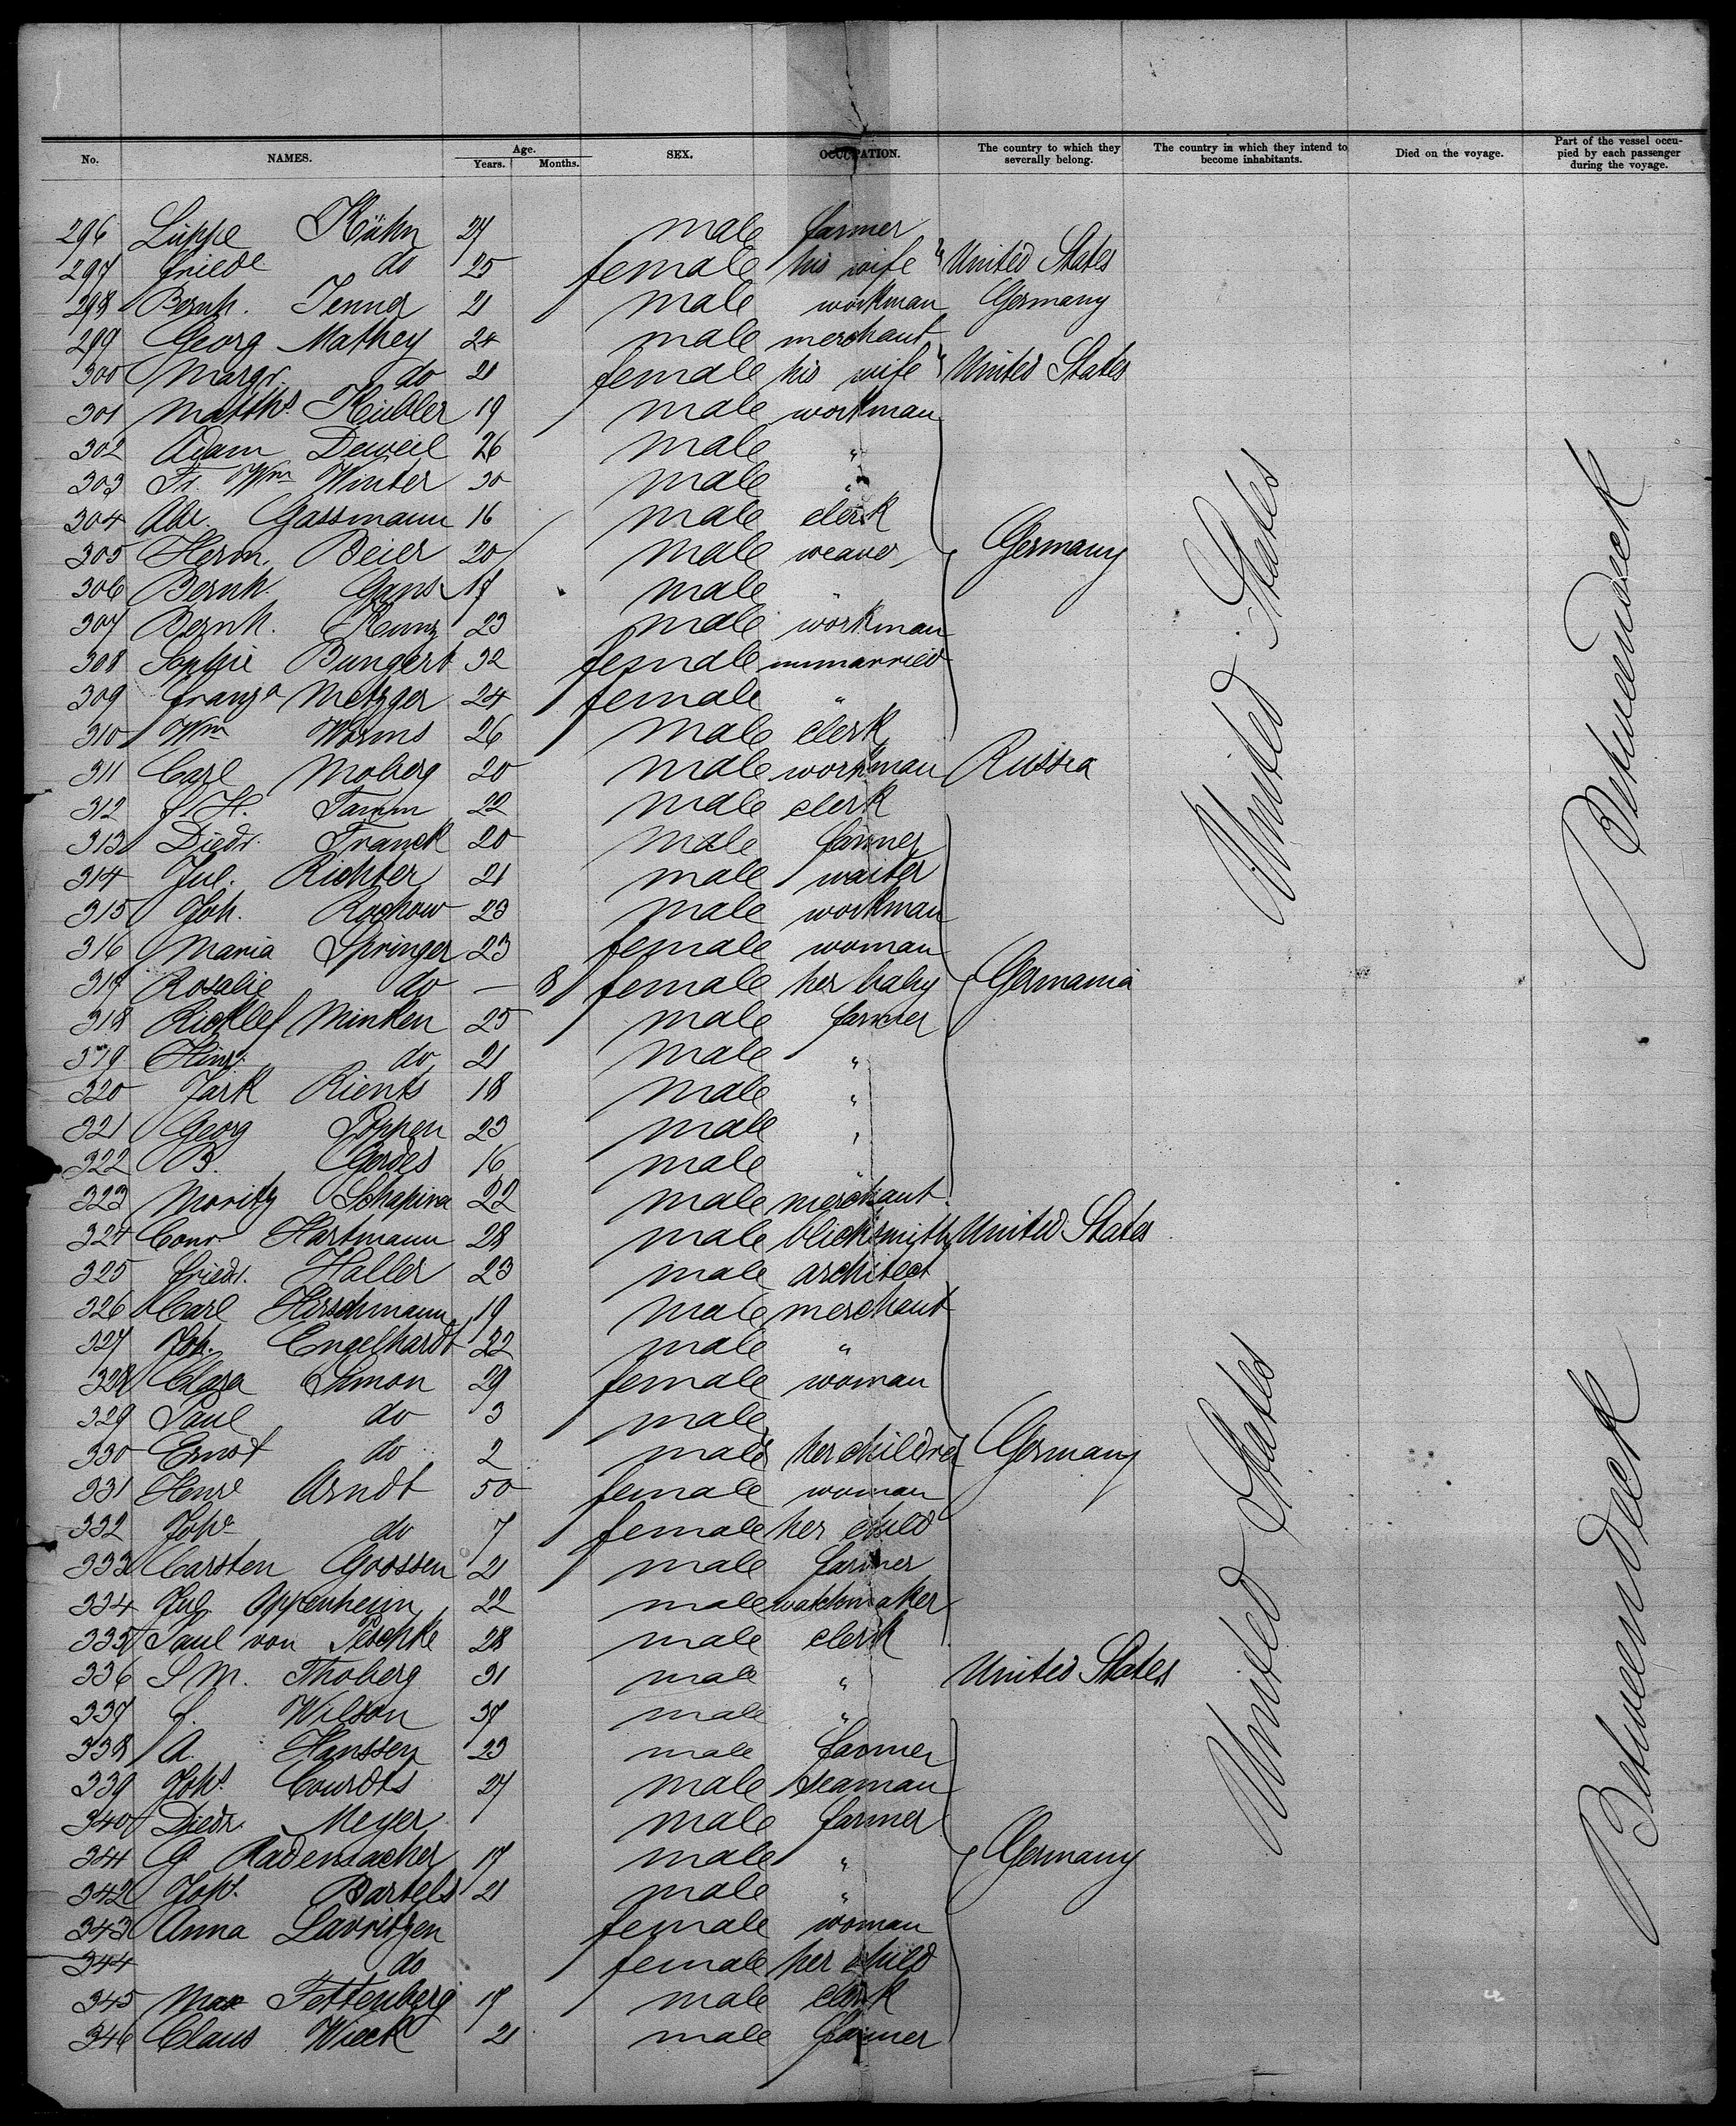 No. NAMES. Age. Years. Months. SEX. OCCUPATION. The country to which they severally belong. The country in which they intend to become inhabitants. Died on the voyage. Part of the vessel occupied by each passenger during the voyage.
296 Lüppe Kühn 27 male farmer
297 Friede do 25 female his wife United States
298 Bernh. Jenner 21 male workman Germany
299 Georg Mathey 24 male merchant
300 Margr. do 21 female his wife United States
301 Matths Kübler 19 male workman
302 Adam Deweil 26 male "
303 Fr. Wm Winter 30 male "
304 Abr. Gassmann 16 male clerk
305 Herm. Beier 20 male weaver Germany
306 Bernh. Gans 17 male "
307 Bernh. Kunz 23 male workman
308 Sophie Bungert 32 female unmarried
309 Franza Metzger 24 female "
310 Wm Worms 26 male clerk
311 Carl Moberg 20 male workman Russia
312 H. Tamm 22 male clerk
313 Diedr. Franck 20 male farmer
314 Jul. Richter 21 male waiter
315 Joh. Rochow 23 male workman
316 Maria Springer 23 female woman
317 Rosalie do — 8 female her baby Germania
318 Ricklef Minken 25 male farmer
319 Hinr. do 21 male "
320 Jark Rients 18 male "
321 Georg Poppen 23 male "
322 B. Gerdes 16 male "
323 Moritz Schapira 22 male merchant
324 Conr Hartmann 28 male blichsmith United States
325 Friedr. Haller 23 male architect
326 Carl Hirschmann 19 male merchant
327 Joh. Engelhardt 22 male "
328 Clara Simon 29 female woman
329 Paul do 3 male
330 Ernst do 2 male her children Germany
331 Henre Arndt 50 female woman
332 Joha do 7 female her child
333 Carsten Goossen 21 male farmer
334 Jul. Oppenheim 22 male watchmaker
335 Paul von Peschke 28 male clerk
336 S M. Thoberg 31 male " United States
337 Wilson 37 male "
338 A. Hanssen 23 male farmer
339 Johs Courdts 27 male seaman
340 Diedr. Meyer male farmer
341 G Rademacher 17 male " Germany
342 Johs. Bartels 21 male "
343 Anna Lavritzen female woman
344 do female her child
345 Max Tettenberg 17 male clerk
346 Claus Wieck 21 male farmer
United States
United States
Betweendeck
Betweendeck